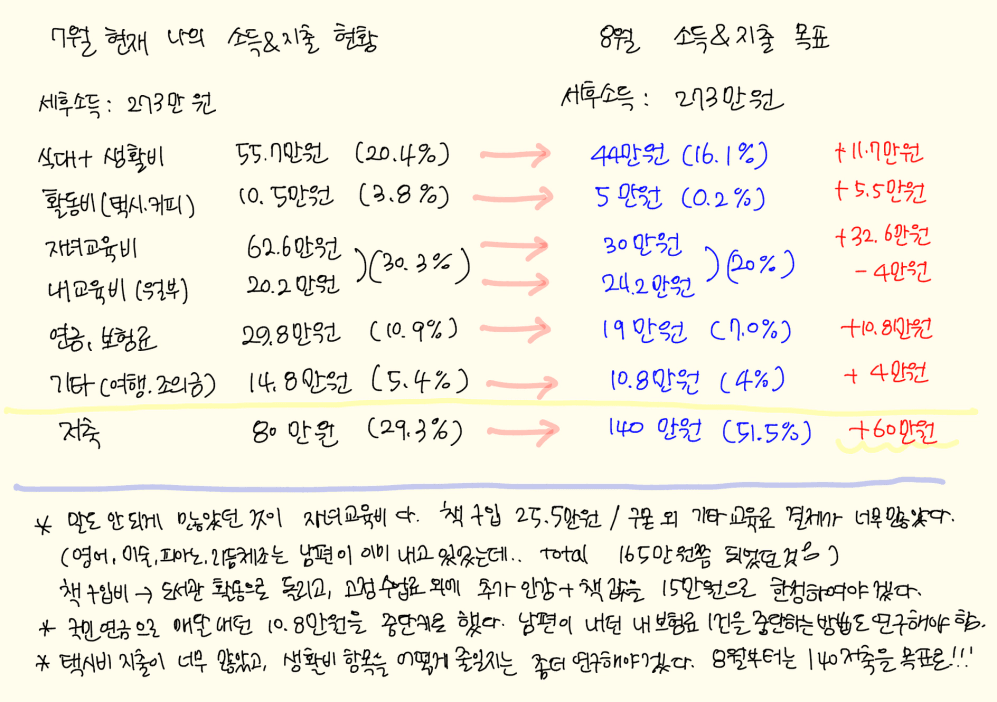 7월 현재 나의 소득&지출 현황 8월 소득&지출 목표
세후소득: 273만원 세후소득: 273만원
식대+ 생활비 55.7만원 (20.4%) → 44만원 (16.1%) +11.7만원
활동비(택시.커피) 10.5만원 (3.8%) → 5만원 (0.2%) +5.5만원
자녀교육비 62.6만원 → 30만원 +32.6만원
)(30.3%) )(20%)
내교육비(월부) 20.2만원 → 24.2만원 -4만원
연금, 보험료 29.8만원 (10.9%) → 19만원 (7.0%) +10.8만원
기타(여행.조의금) 14.8만원 (5.4%) → 10.8만원 (4%) +4만원
저축 80만원 (29.3%) → 140만원 (51.5%) +60만원
* 말도 안되게 많았던 것이 자녀교육비다. 책구입 25.5만원 / 구몬 외 기타교육료 결제가 너무많았다.
(영어, 미술, 피아노, 리듬체조는 남편이 이미 내고 있었는데.. total 165만원쯤 되었던 것임)
책구입비 → 도서관 활동으로 돌리고, 고정수업료 외에 추가 인강+책값을 15만원으로 한정하여야 겠다.
* 국민연금으로 매달 내던 10.8만원을 중단키로 했다. 남편이 내던 내보험료 1건을 중단하는 방법도 연구해야 함.
* 택시비 지출이 너무 많았고, 생활비 항목을 어떻게 줄일지는 좀더 연구해야겠다. 8월부터는 140저축을 목표로!!!